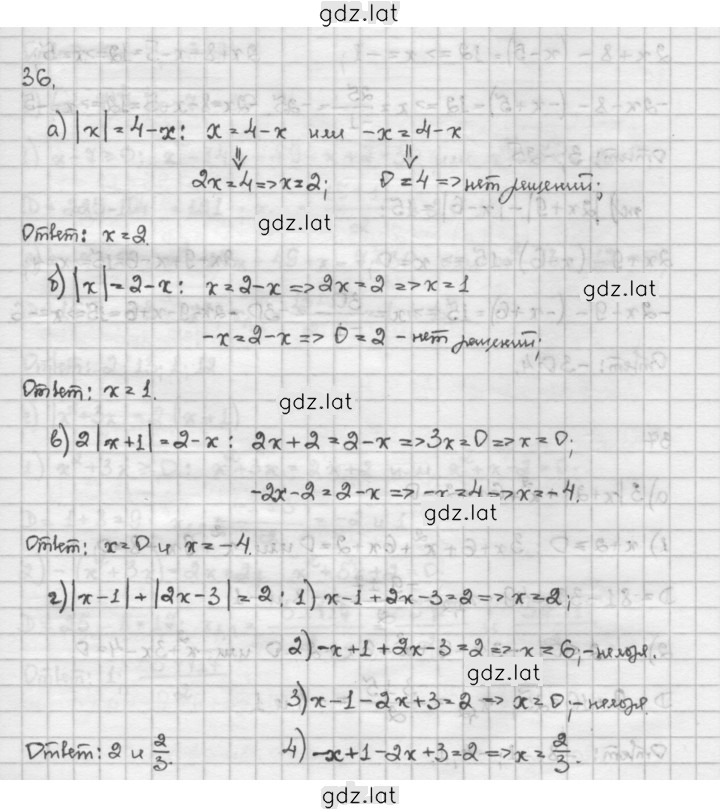 gdz.lat
36.
а) |x| = 4-x: x = 4-x или -x = 4-x
⇓ ⇓
2x = 4 => x = 2; 0 = 4 => нет решений;
gdz.lat
Ответ: x = 2.
б) |x| = 2-x: x = 2-x => 2x = 2 => x = 1
gdz.lat
-x = 2-x => 0 = 2 - нет решений;
Ответ: x = 1.
gdz.lat
в) 2|x+1| = 2-x: 2x+2 = 2-x => 3x = 0 => x = 0;
-2x-2 = 2-x => -x = 4 => x = -4.
gdz.lat
Ответ: x = 0 и x = -4.
г) |x-1| + |2x-3| = 2: 1) x-1+2x-3 = 2 => x = 2;
2) -x+1+2x-3 = 2 => x = 6; - нельзя.
gdz.lat
3) x-1-2x+3 = 2 => x = 0; - нельзя
Ответ: 2 и 2/3. 4) -x+1-2x+3 = 2 => x = 2/3.
gdz.lat